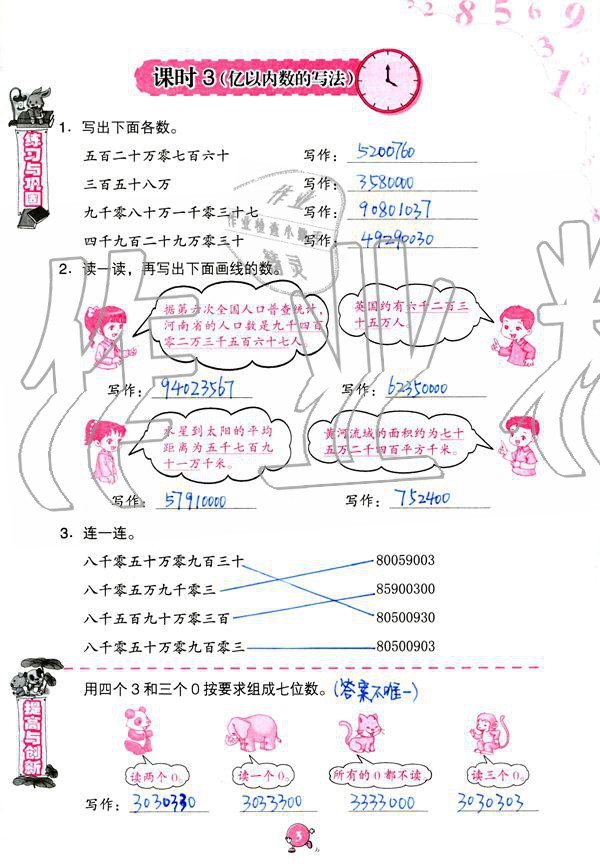 2 2 8 5 6 9
3
1
课时3(亿以内数的写法)
练习与巩固
1. 写出下面各数。
五百二十万零七百六十 写作: 5200760
三百五十八万 写作: 3580000
九千零八十万一千零三十七 写作: 90801037
四千九百二十九万零三十 写作: 49290030
2. 读一读，再写出下面画线的数。
据第六次全国人口普查统计，
河南省的人口数是九千四百
零二万三千五百六十七人。
英国约有六千二百三
十五万人。
写作: 94023567 写作: 62350000
水星到太阳的平均
距离为五千七百九
十一万千米。
黄河流域的面积约为七十
五万二千四百平方千米。
写作: 57910000 写作: 752400
3. 连一连。
八千零五十万零九百三十 80059003
八千零五万九千零三 85900300
八千五百九十万零三百 80500930
八千零五十万零九百零三 80500903
提高与创新
用四个3和三个0按要求组成七位数。(答案不唯一)
读两个0。 读一个0。 所有的0都不读。 读三个0。
写作: 3030330 3033300 3333000 3030303
3
作业
作业检查小助手
精灵
作业精灵